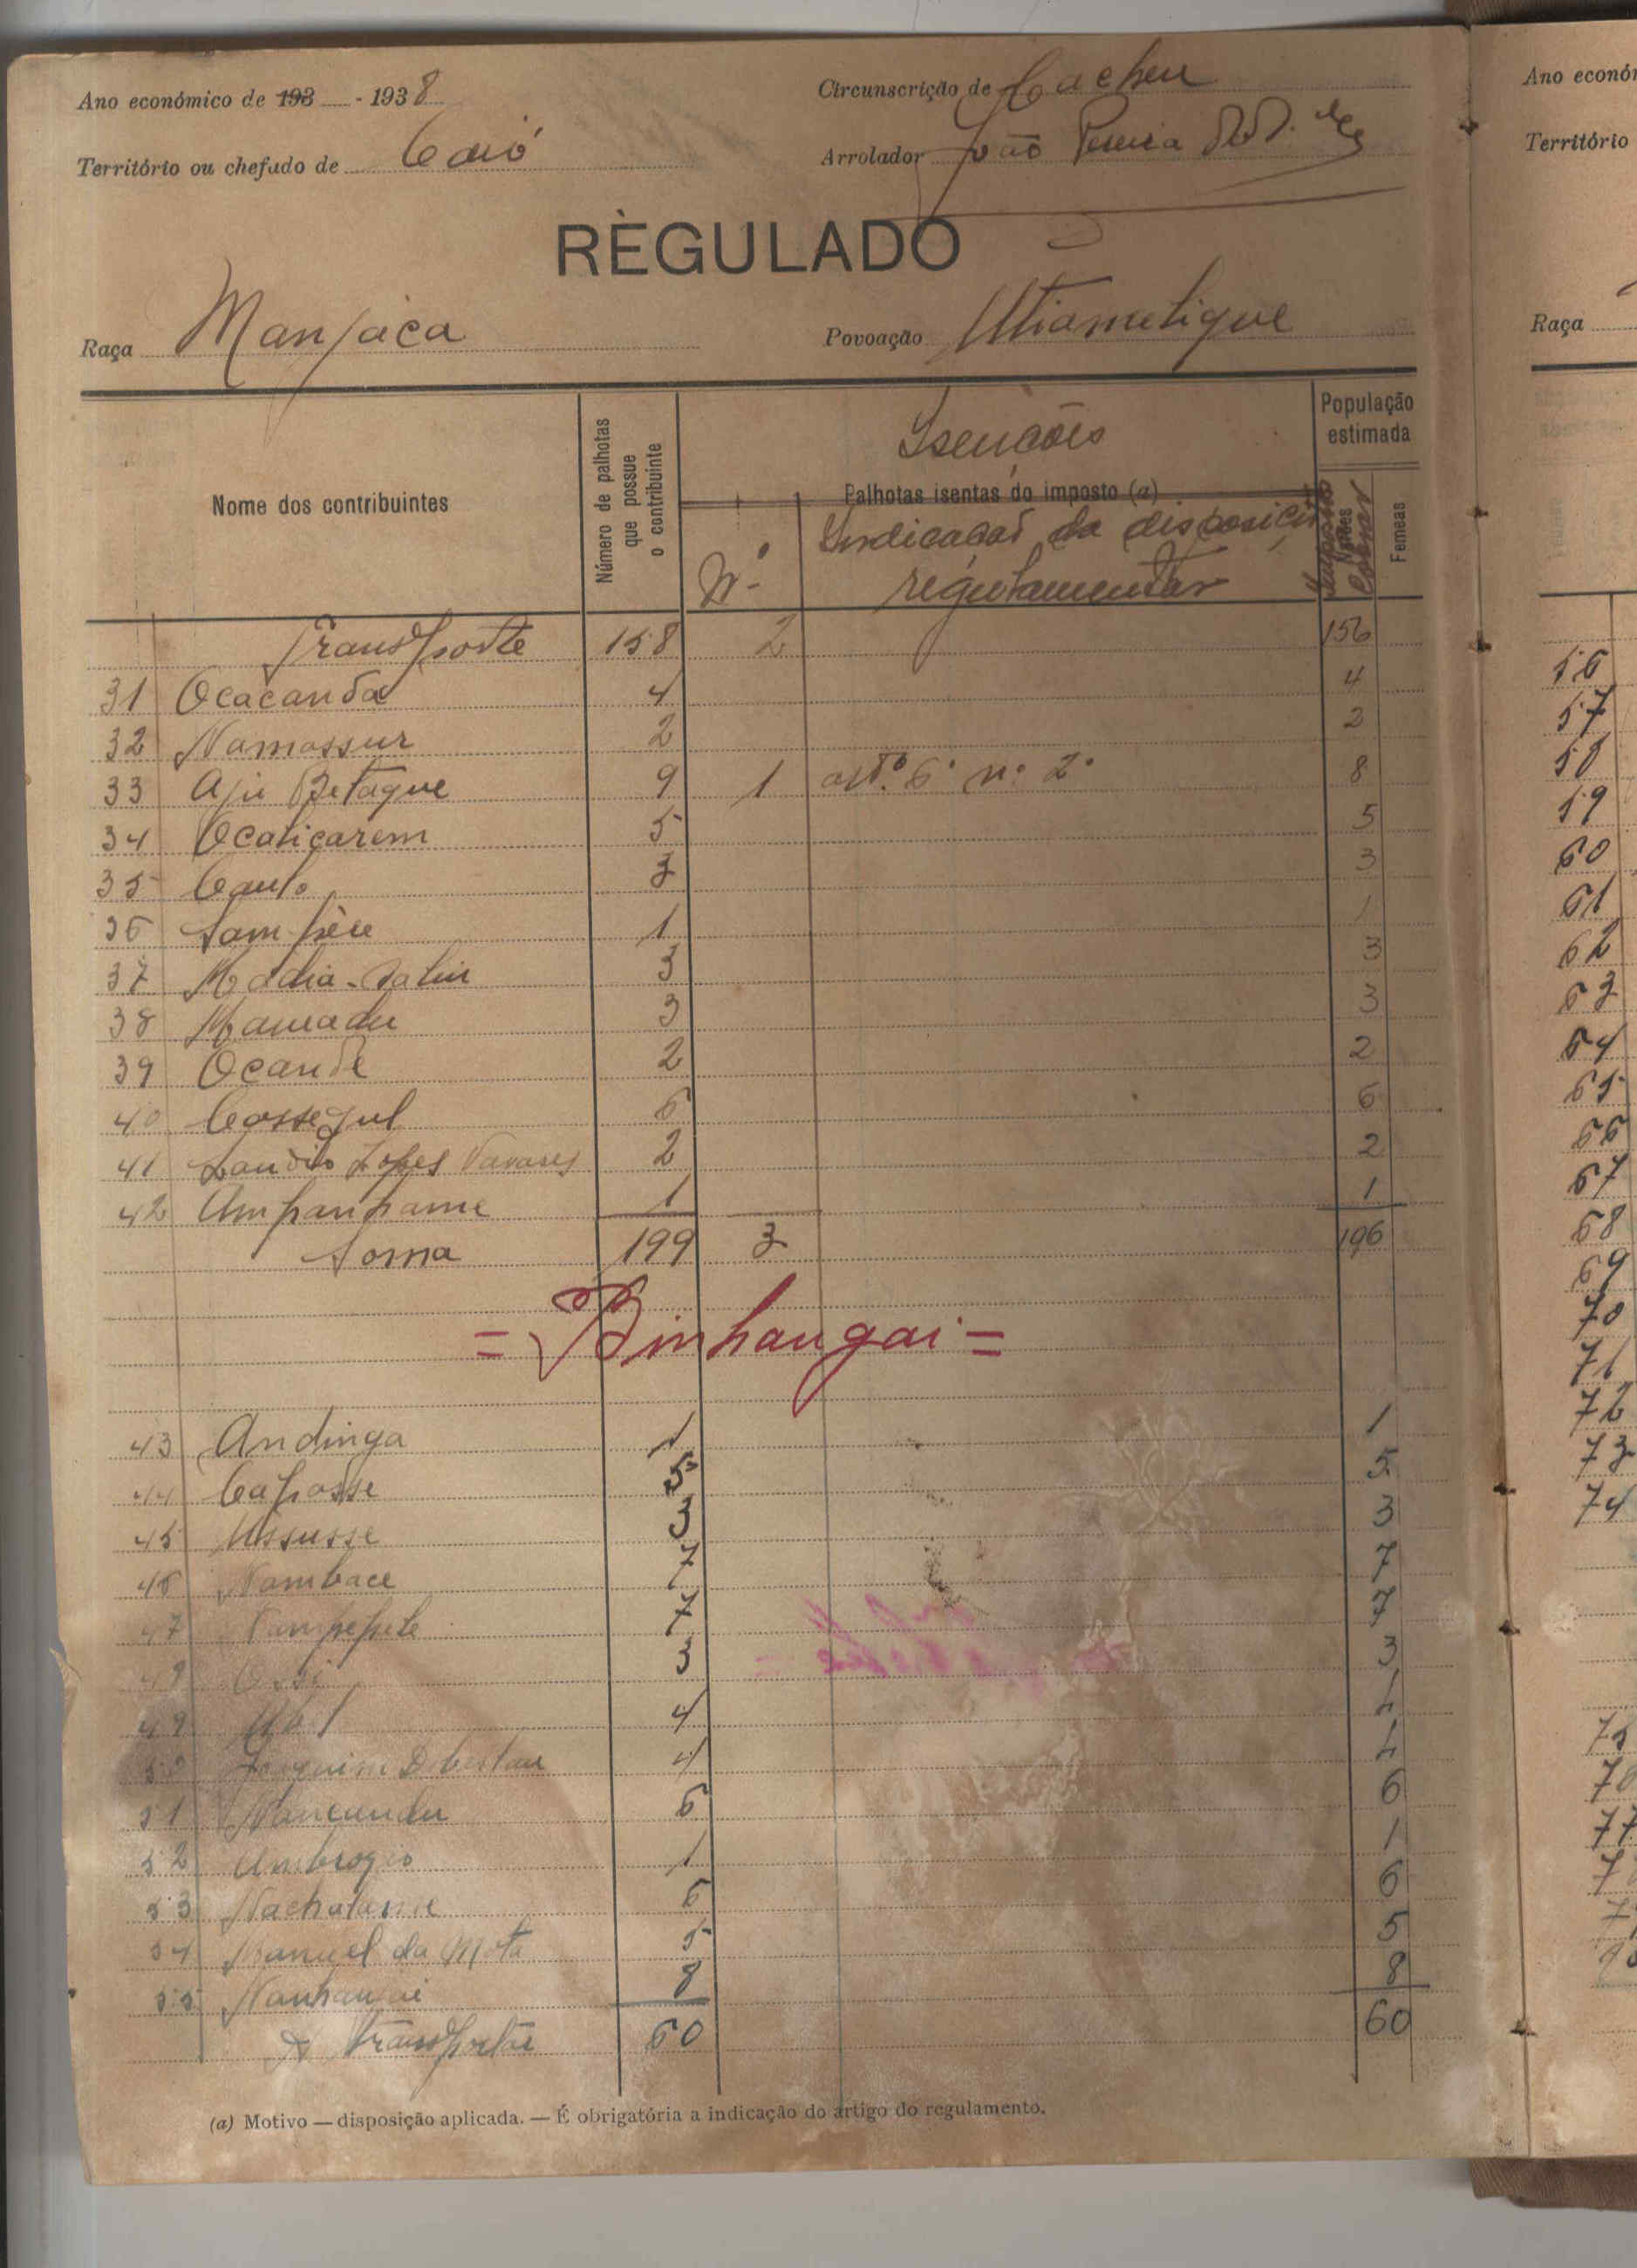 Ano económico de 193 - 1938
Circunscrição de Cacheu
Território ou chefado de Caió
Arrolador João Pereira
REGULADO
Raça Manjaca
Povoação Utiametique
Nome dos contribuintes
Número de palhotas que possue o contribuinte
Isenções
Palhotas isentas do imposto (a)
Nº
Indicacaõ da disposição
regulamentar
População estimada
Femeas
Transporte 158 2 156
31 Ocacanda 4 4
32 Namossur 2 2
33 Aju Betaque 9 1 artº 6º nº 2º 8
34 Ocaticarem 5 5
35 Caulo 3 3
36 1 1
37 3 3
38 Mamadu 3 3
39 Ocande 2 2
40 Cossegul 6 6
41 Lopes Tavares 2 2
42 Ampanpame 1 1
Soma 199 3 196
= Binhangai =
43 Andinga 1 1
44 Caposse 5 5
45 Ussusse 3 3
46 Nambace 7 7
47 7 7
48 3 3
49 4 4
50 Joaquim 4 4
51 6 6
52 Ambrogio 1 1
53 6 6
54 Manuel da Mota 5 5
55 8 8
A transportar 60 60
(a) Motivo — disposição aplicada. — É obrigatória a indicação do artigo do regulamento.
Ano económ
Território
Raça
56
57
58
59
60
61
62
63
64
65
66
67
68
69
70
71
72
73
74
75